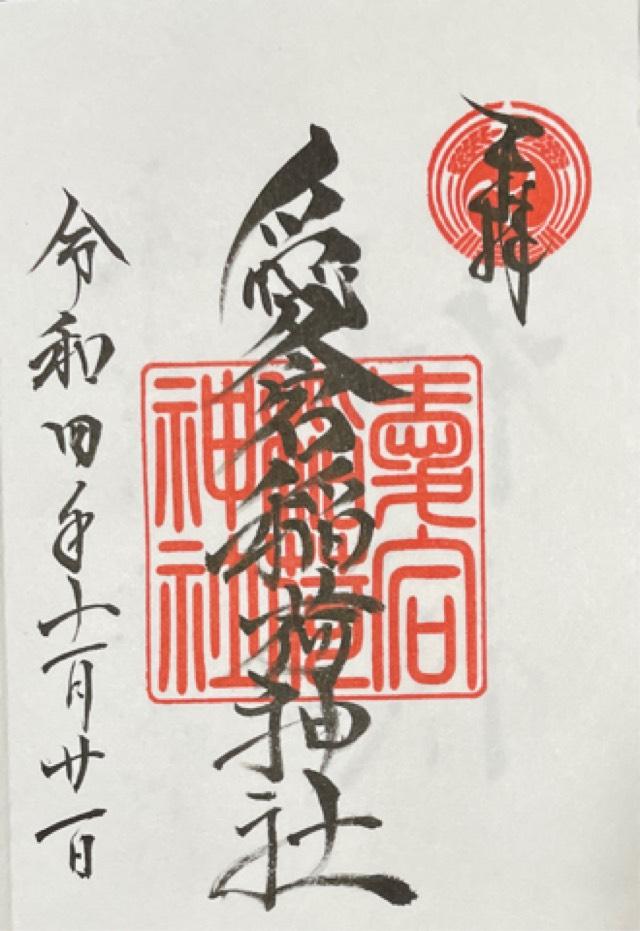 奉拝
愛宕稲荷神社
愛宕
稲荷
神社
令和四年十一月廿一日